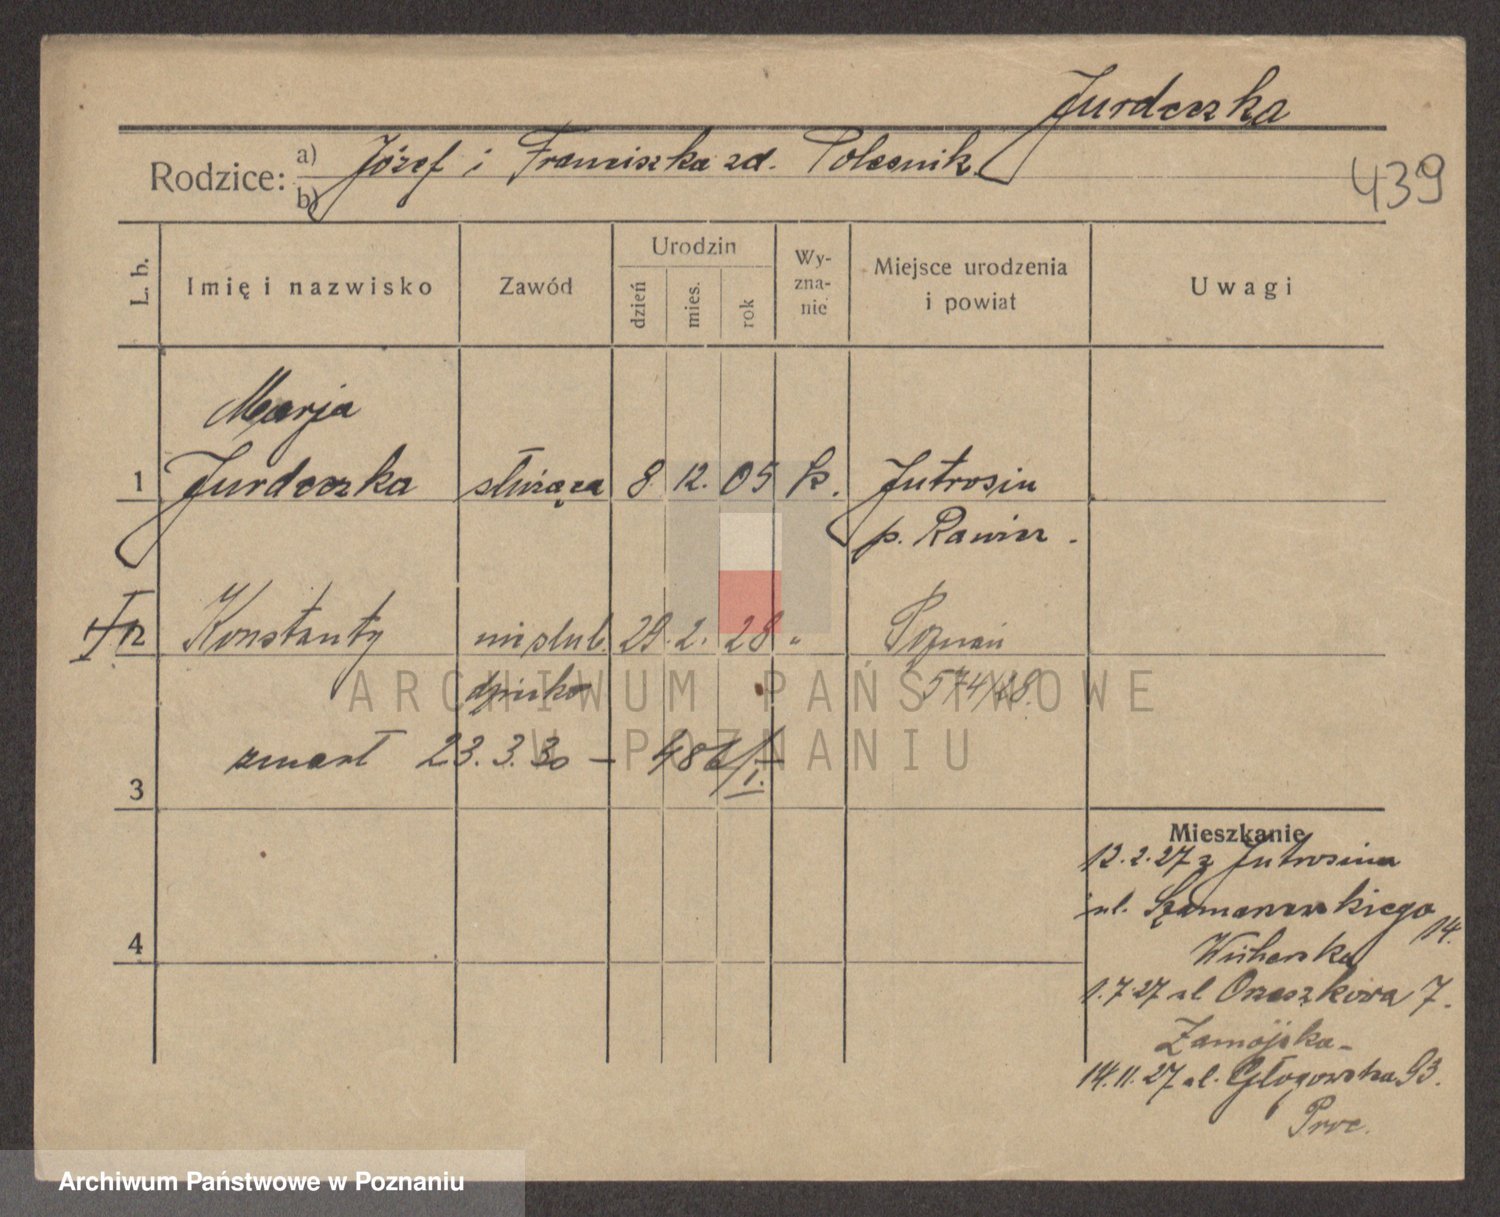 Jurdeczka
Rodzice: a) Józef i Franciszka zd. Polesnik
b)
439
L. b.
Imię i nazwisko
Zawód
Urodzin
dzień
mies.
rok
Wy-
zna-
nie
Miejsce urodzenia
i powiat
Uwagi
Marja
1 Jurdeczka służąca 8 12. 05 k. Jutrosin
p. Rawicz.
2 Konstanty nieślub. 29. 2. 28 " Poznań
dziecko 574/28.
zmarł 23.3.30 — 486/I.
3
4
Mieszkanie
12.2.27 z Jutrosina
ul. Szamarzewskiego 14.
1.7.27 ul Orzeszkowa 7.
Zamojska-
14.11.27 ul. Głogowska 93.
ARCHIWUM PAŃSTWOWE
W POZNANIU
Archiwum Państwowe w Poznaniu